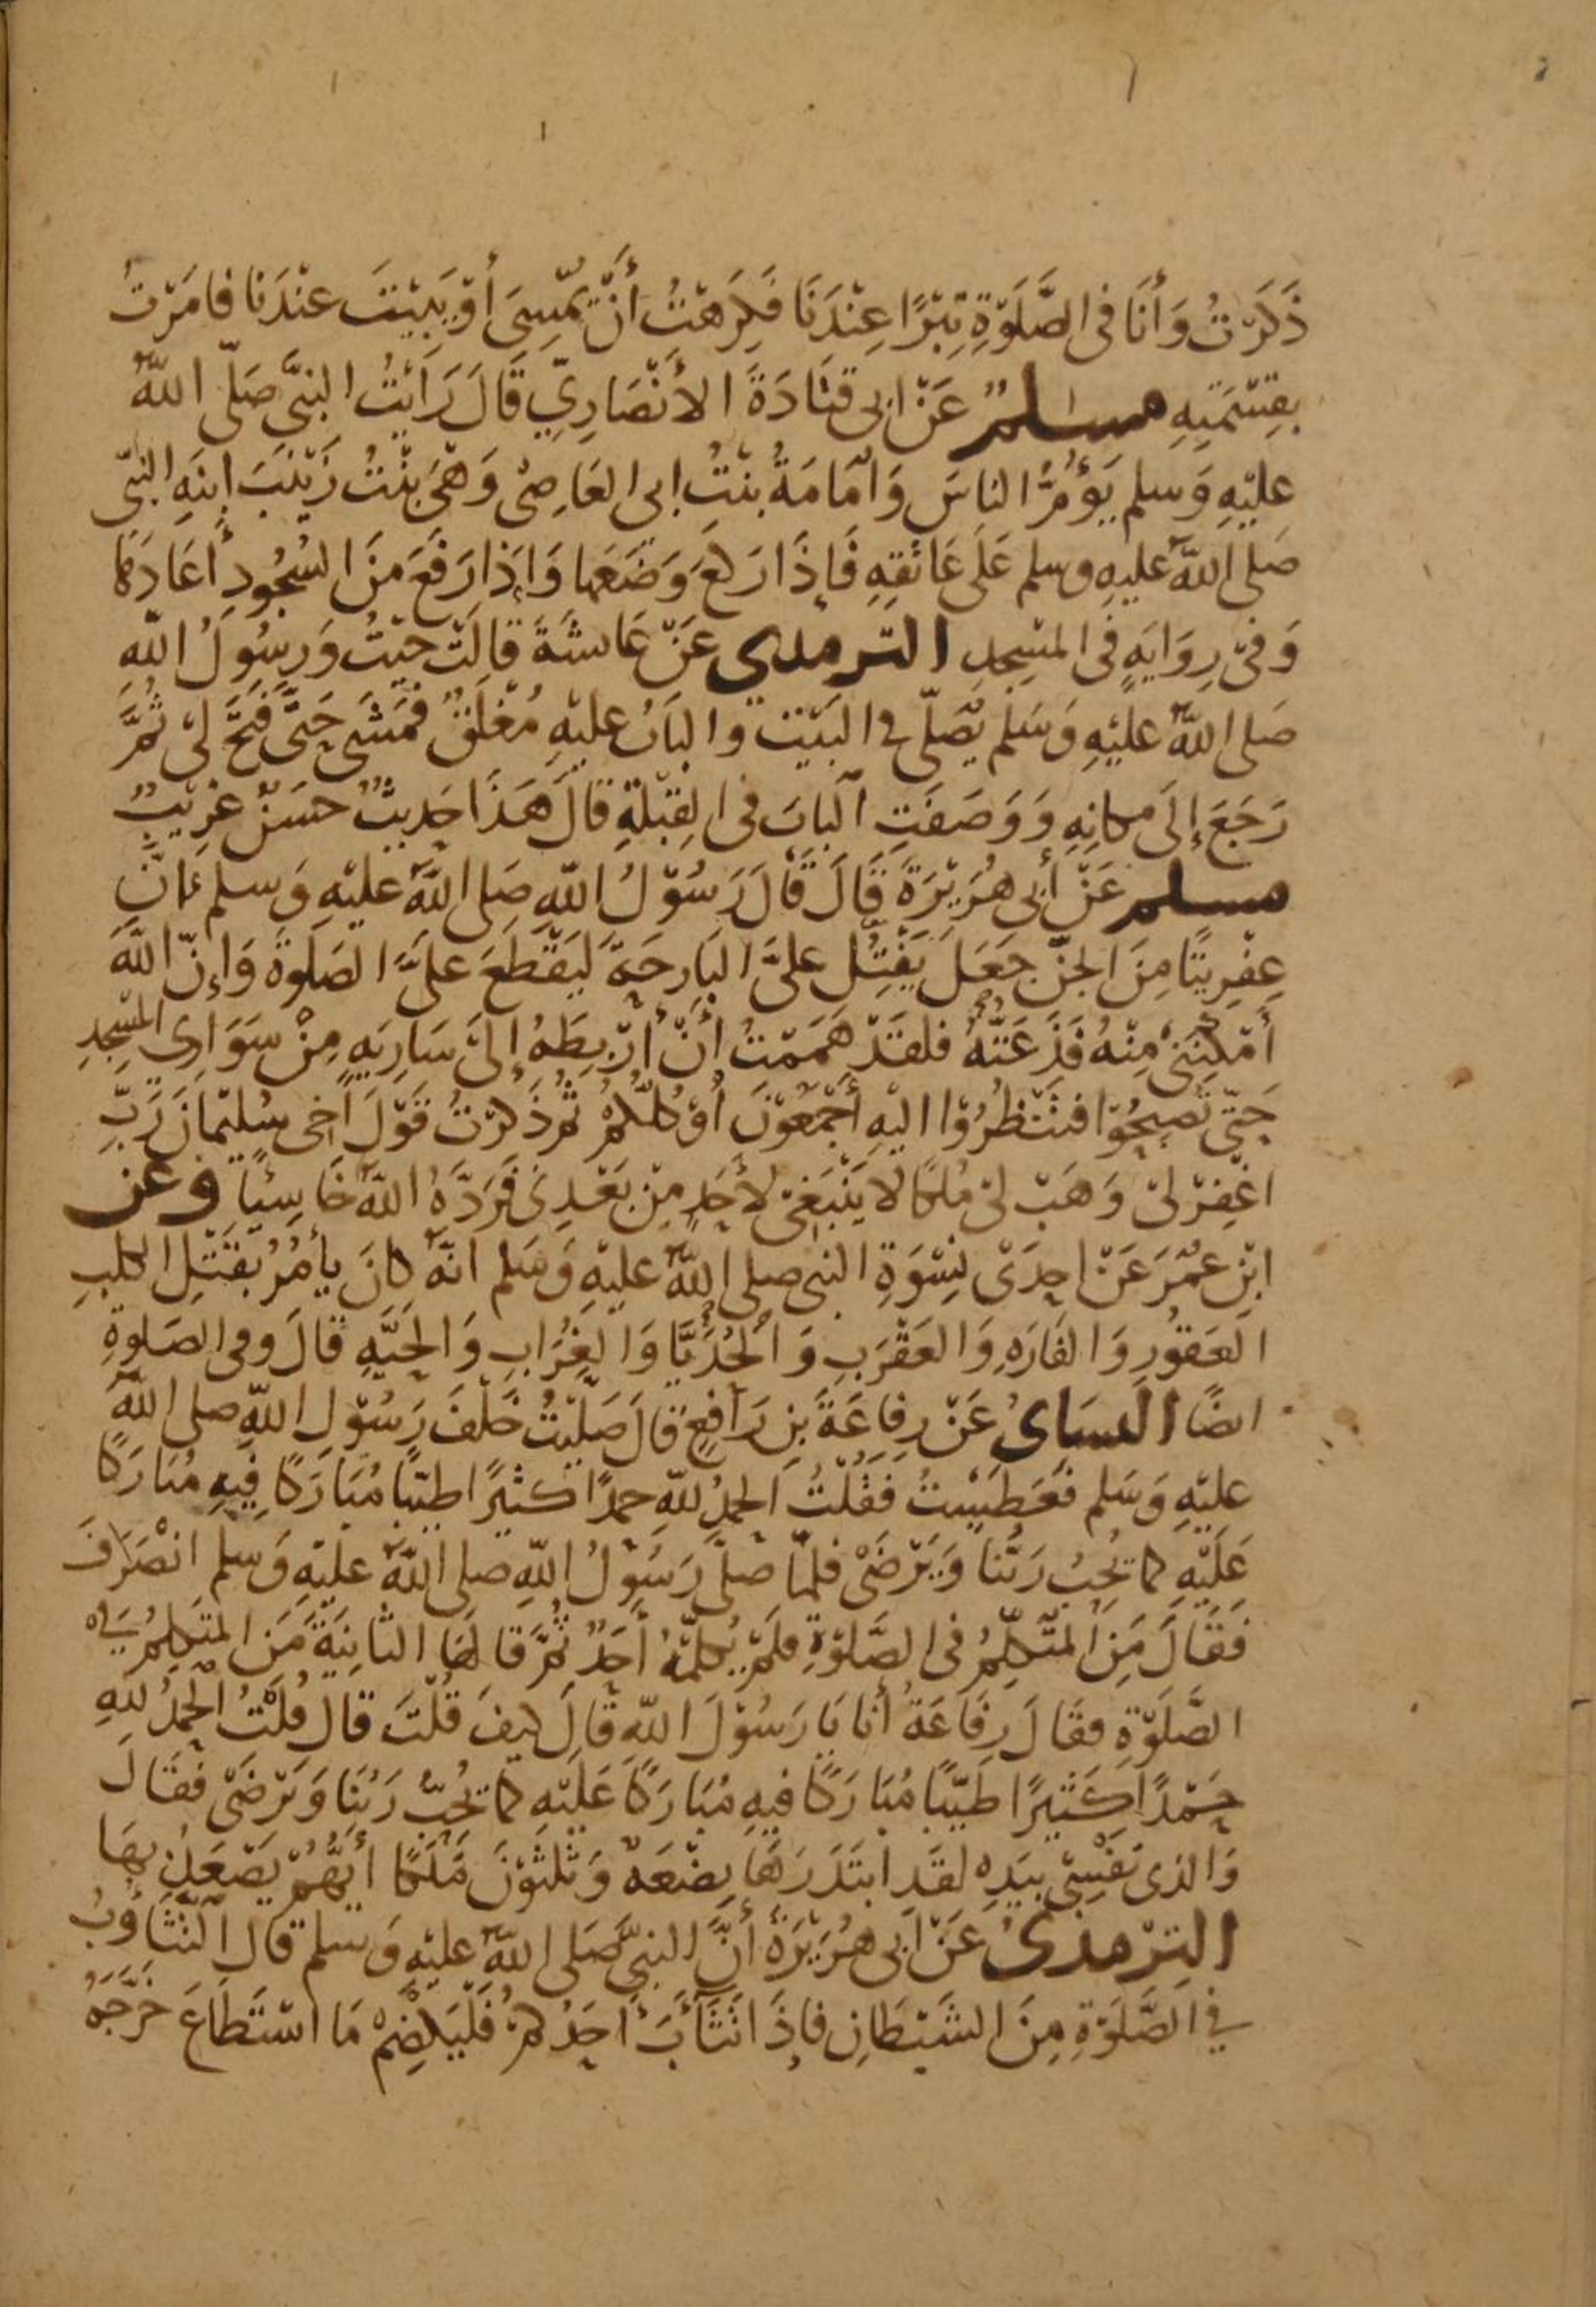 ذَكَرْتُ وَأَنَا فى الصَّلَوٰةِ تِبْرًا عِنْدَنَا فَكِرَهْتُ أَنْ يُمْسِىَ أَوْ يَبِيْتَ عنْدَنا فامَرْتُ
بقِسْمَتِهِ مسلمٌ عَنْ ابى قتَادَةَ الأنْصَارِيّ قَالَ رَأَيْتُ النبيَّ صَلّى اللهُ
عليْهِ وَسلم يَؤُمُّ الناسَ وَأمَامَةُ بنْتُ ابى العَاصِىْ وَهْىَ بنْتُ زَيْنَبَ ابنَةِ النبىّ
صَلى اللهُ عليْهِ وسلم عَلَى عَاتقِهِ فَإذَا رَكَعَ وَضَعَها وَإذَا رَفَعَ مِنَ السُجُودِ أعَادَهَا
وَفىْ رِوَايَةٍ فى المسْجِدِ الترمدى عَنْ عَائشَةَ قالَتْ جئْتُ وَرسُولُ اللهِ
صَلى اللهُ عليْهِ وَسَلم يُصَلّى فى البَيْتِ والبَابُ عليْهِ مُغْلَقٌ فمَشَى حَتَّى فَتَحَ لىْ ثُمَّ
رَجَعَ إلَى مكانِهِ وَوَصَفَتِ البَابَ فى القِبْلَةِ قَالَ هَذَا حَدِيثٌ حسَنٌ غرِيْبٌ
مسلم عَنْ أبى هُرَيْرَةَ قَالَ قَالَ رَسُوْلُ اللهِ صَلى اللهُ عليْهِ وَسلم إنّ
عِفْرِيتًا مِنَ الجِنّ جَعَلَ يَفْتِكُ علىَّ البَارِحَةَ ليَقْطَعَ علىَّ الصَلوةَ وَإنّ اللهَ
أَمْكَنَنىْ مِنْهُ فَذَعَتّهُ فلقَدْ هَمَمْتُ أنْ أرْبِطَهُ إلىَ سَارِيَةٍ مِنْ سَوَارِى المسْجِدِ
حَتّى تُصْبِحُوْا فتَنْظُرُوْا اليْهِ أَجْمَعُوْنَ أوْ كلّكمُ ثمّ ذَكرْتُ قَوْلَ أخِى سُليْمَانَ رَبّ
اغْفِرْ لىْ وَهَبْ لىْ مُلكًا لا يَنْبَغِىْ لأحَدٍ مِنْ بَعْدِىْ فَرَدَّهُ اللهُ خَاسِئًا وعن
ابْنِ عُمَرَ عَنْ احِدَى نِسْوَةِ النبى صلى اللهُ عليْهِ وَسَلم انهُ كانَ يأمُرُ بقَتْلِ الكلبِ
العَقوُرِ وَالفَارَةِ وَالعَقْرَبِ وَالحُدَيَّا وَالغُرَابِ وَالحَيَّةِ قَالَ وفى الصَلوةِ
ايضًا النسَاىُ عَنْ رِفِاعَةَ بنِ رَافِعٍ قَالَ صَلّيْتُ خَلْفَ رَسُوْلِ اللهِ صلى اللهُ
عليْهِ وَسَلم فعَطَسْتُ فقُلْتُ الحمدُ للهِ حمدًا كثيْرًا طيّبًا مُبَارَكًا فِيهِ مُبَارَكًا
عَلَيْهِ كما يُحِبُ رَبُّنا وَيَرْضَىْ فلمّا صَلَّى رَسُوْلُ اللهِ صلى اللهُ عليْهِ وَسلم انْصَرَفَ
فَقَالَ مَنِ المتَكلِّمُ فى الصَّلوٰةِ فلَمْ يُكلّمْهُ أحَدٌ ثمَّ قالهَا الثانِيَةَ مَنِ المتكلمُ فى
الصَّلَوٰةِ فقالَ رِفَاعَةُ أنا يَا رَسُوْلَ اللهِ قَالَ كيفَ قُلْتَ قَالَ قُلْتُ الحمدُ للهِ
حَمْدًا كَثيْرًا طَيّبًا مُبَارَكًا فيهِ مُبَارَكًا عَلَيْهِ كما يُحِبُّ رَبُنَا وَيَرْضَىْ فقَالَ
وَالذى نَفْسِىْ بيَدِهِ لقَدِ ابتَدَرَهَا بِضْعَةٌ وَثلثوُنَ مَلَكًا أيّهُمْ يَصْعَدُ بهَا
التِرْمذىُ عَنْ أبى هُرَيْرَةَ أنَّ النبىَّ صَلى اللهُ عليْهِ وَسلم قَالَ التثَاؤُبُ
فى الصَّلَوٰةِ مِنَ الشَيْطَانِ فاِذَا تثَاءَبَ أحَدُكمْ فَلْيَكظِمْ مَا اسْتَطَاعَ خَرَّجَهُ